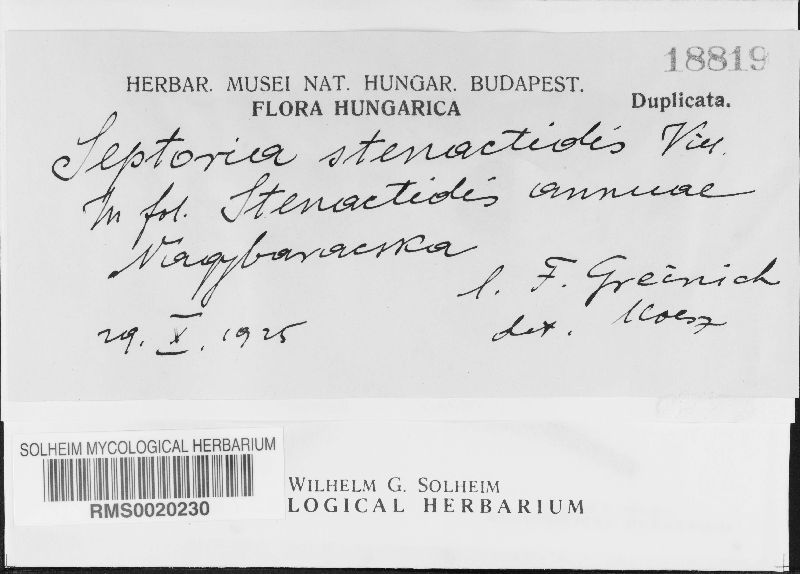 18819
HERBAR. MUSEI NAT. HUNGAR. BUDAPEST.
FLORA HUNGARICA
Duplicata.
Septoria stenactidis Vill.
In fol. Stenactidis annuae
Nagybaracska
l. F. Grecinich
29. X. 1925
det. Moesz
SOLHEIM MYCOLOGICAL HERBARIUM
RMS0020230
WILHELM G. SOLHEIM
LOGICAL HERBARIUM